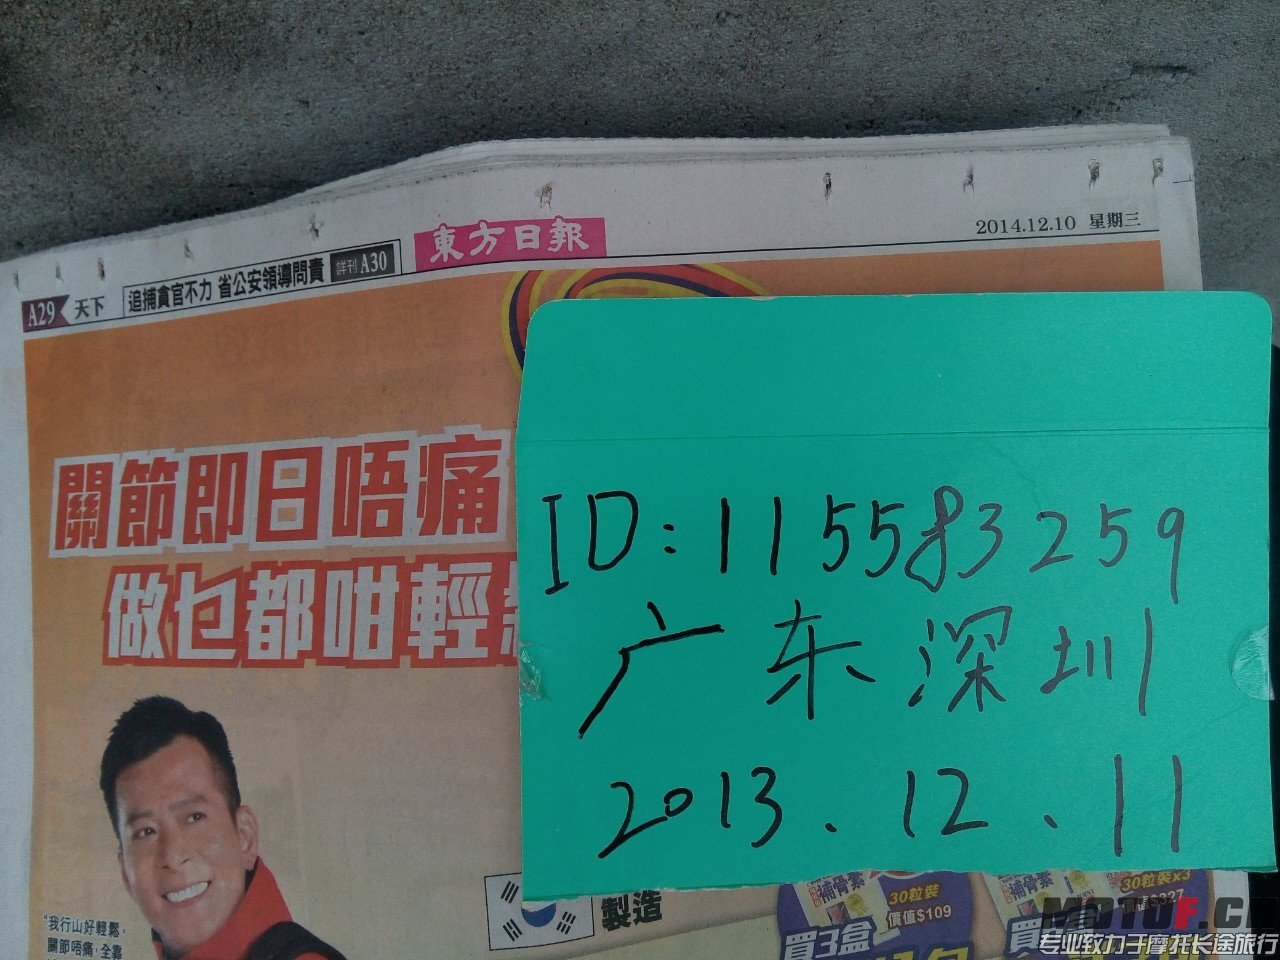 2014.12.10 星期三
東方日報
A29 天下 追捕貪官不力 省公安領導問責 詳刊 A30
關節即日唔痛
做乜都咁輕
ID:115583259
广东深圳
2013.12.11
"我行山好輕鬆,
關節唔痛,全靠
製造
補骨素
30粒裝
價值$109
買3盒
補骨素
30粒裝x3
價值$327
MOTOF.C
专业致力于摩托长途旅行